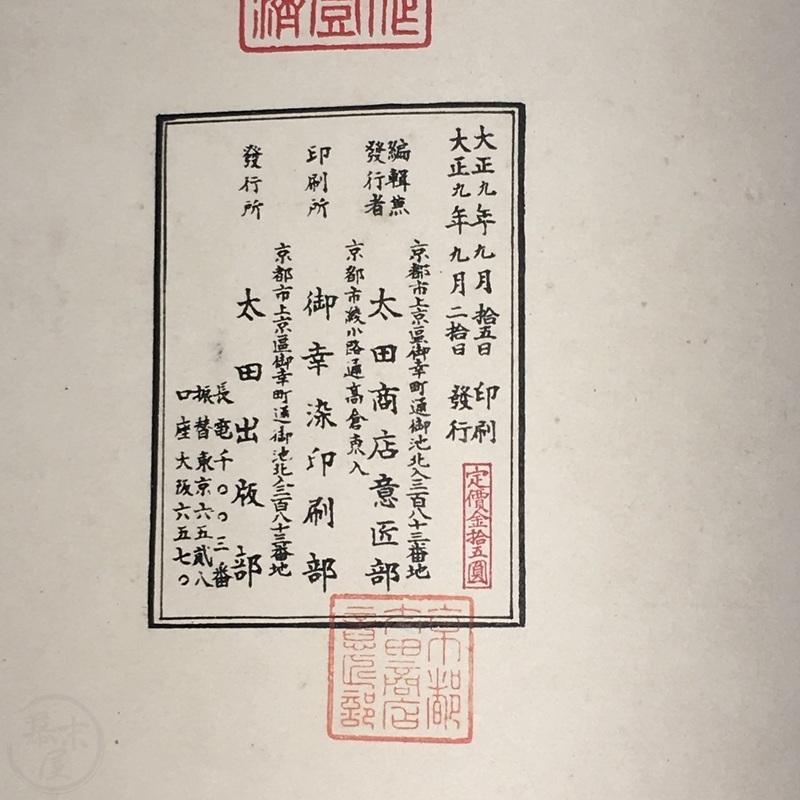 濟登
大正九年九月拾五日 印刷
大正九年九月二拾日 發行
定價金拾五圓
編輯兼
發行者
京都市上京區御幸町通御池北入三百八十三番地
太田商店意匠部
印刷所
京都市綾小路通高倉東入
御幸染印刷部
發行所
京都市上京區御幸町通御池北入三百八十三番地
太田出版部
長電千〇〇三番
振替東京六五貳八
口座大阪六五七〇
京都
太田商店
意匠部